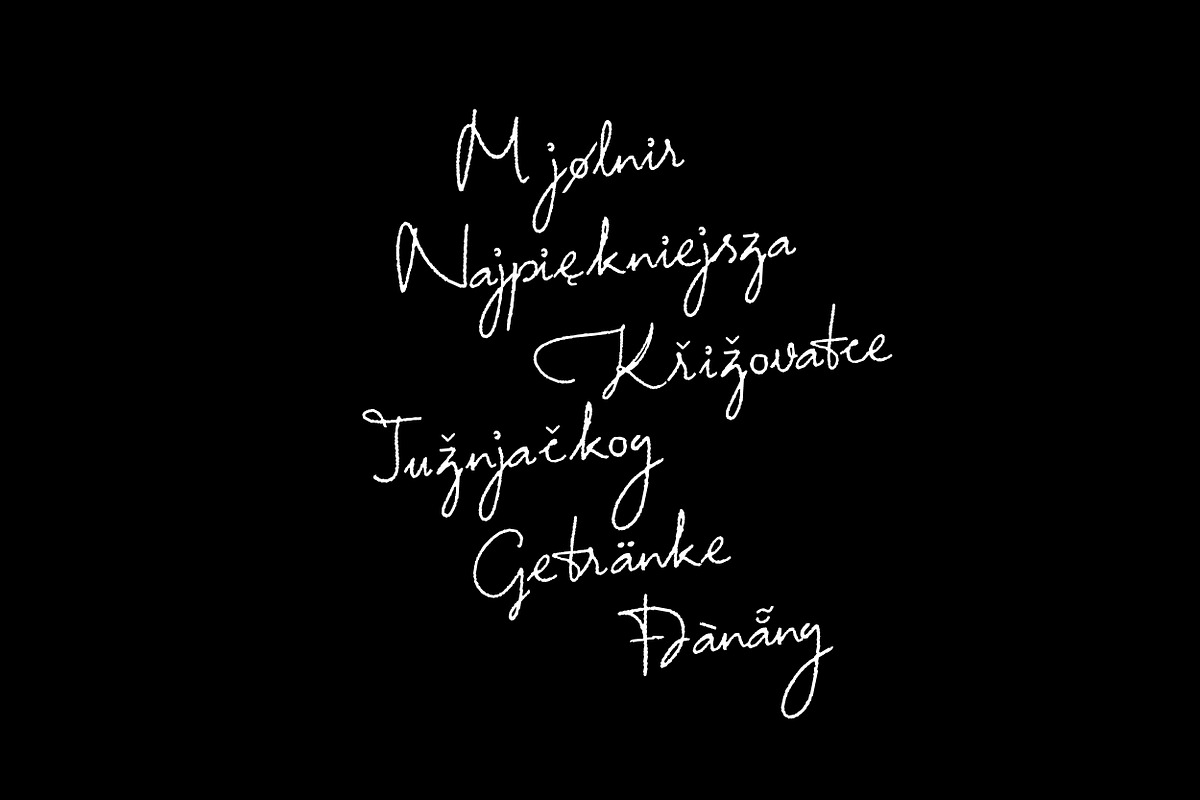 Mjølnir
Najpiękniejsza
Křižovatce
Tužnjačkog
Getränke
Đànẵng